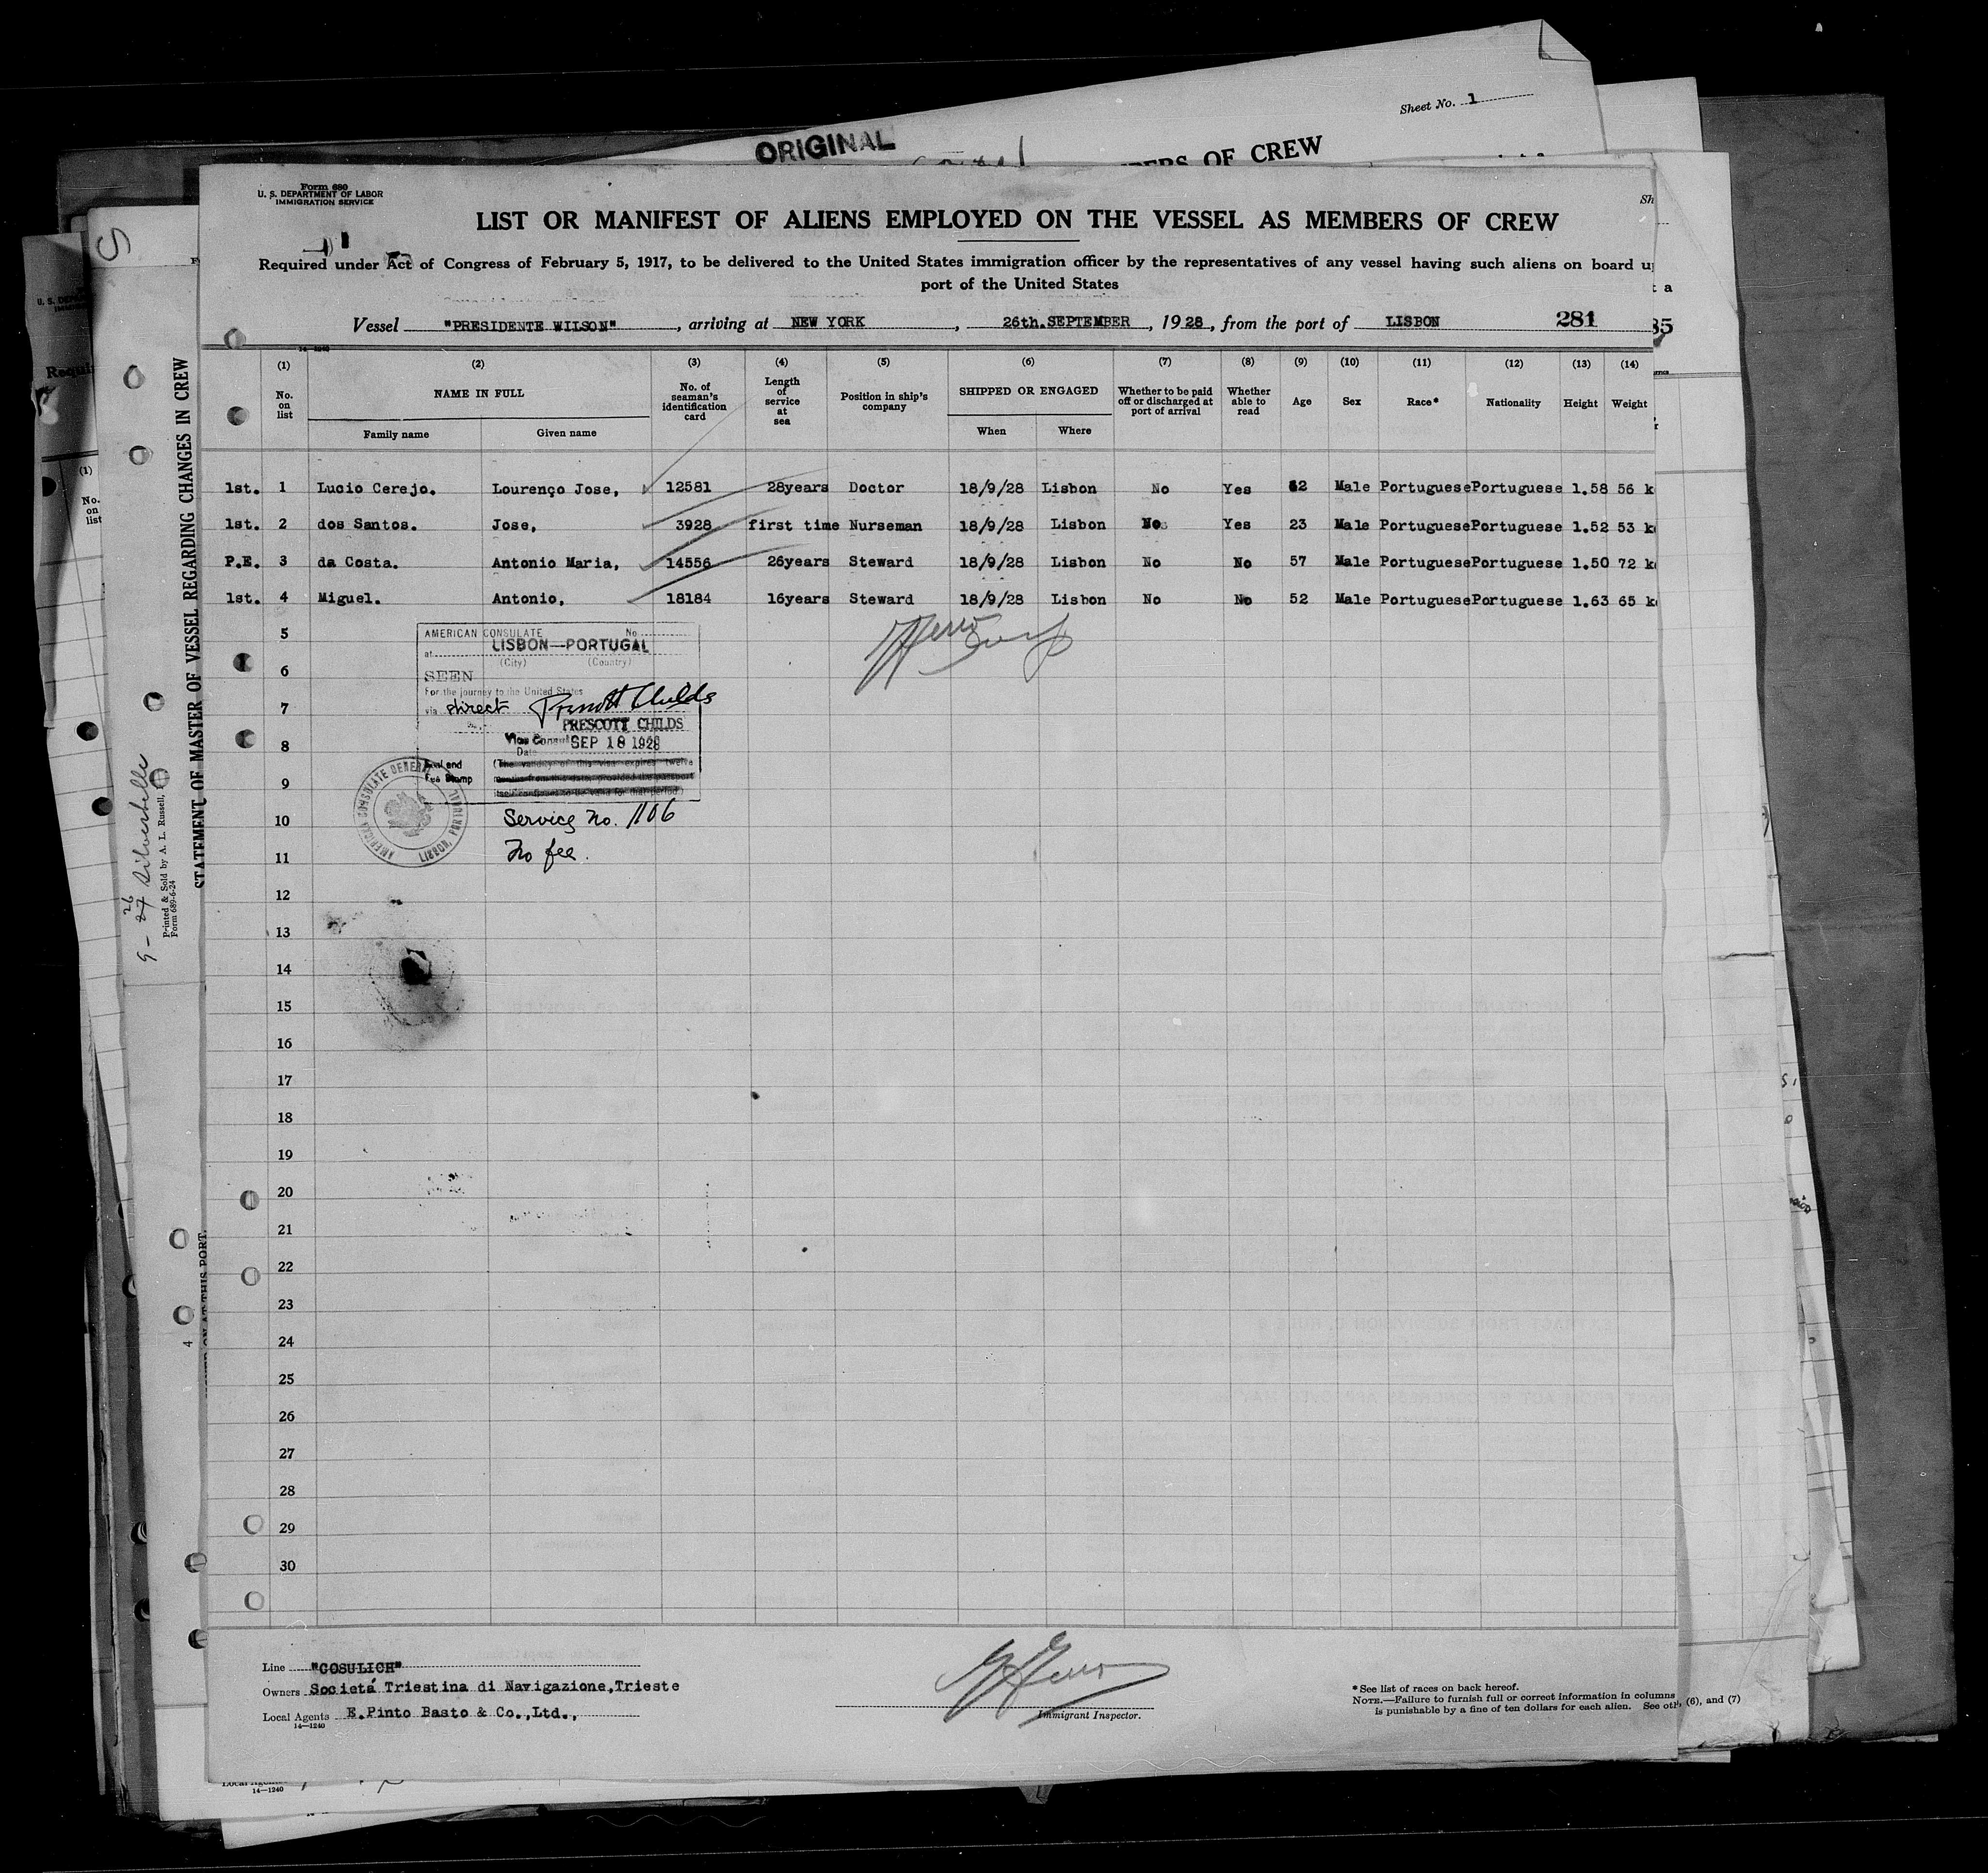 Sheet No. 1
ORIGINAL
OF CREW
Form 680
U. S. DEPARTMENT OF LABOR
IMMIGRATION SERVICE
LIST OR MANIFEST OF ALIENS EMPLOYED ON THE VESSEL AS MEMBERS OF CREW
Required under Act of Congress of February 5, 1917, to be delivered to the United States immigration officer by the representatives of any vessel having such aliens on board
port of the United States
Vessel "PRESIDENTE WILSON", arriving at NEW YORK, 26th. SEPTEMBER, 1928, from the port of LISBON 281
14-1240
(1) (2) (3) (4) (5) (6) (7) (8) (9) (10) (11) (12) (13) (14)
No. on list NAME IN FULL No. of seaman's identification card Length of service at sea Position in ship's company SHIPPED OR ENGAGED Whether to be paid off or discharged at port of arrival Whether able to read Age Sex Race* Nationality Height Weight
Family name Given name When Where
1st. 1 Lucio Cerejo. Lourenço Jose, 12581 28years Doctor 18/9/28 Lisbon No Yes 62 Male Portuguese Portuguese 1.58 56 k
1st. 2 dos Santos. Jose, 3928 first time Nurseman 18/9/28 Lisbon No Yes 23 Male Portuguese Portuguese 1.52 53 k
P.E. 3 da Costa. Antonio Maria, 14556 26years Steward 18/9/28 Lisbon No No 57 Male Portuguese Portuguese 1.50 72 k
1st. 4 Miguel. Antonio, 18184 16years Steward 18/9/28 Lisbon No No 52 Male Portuguese Portuguese 1.63 65 k
5
6
7
8
9
10
11
12
13
14
15
16
17
18
19
20
21
22
23
24
25
26
27
28
29
30
AMERICAN CONSULATE No
at LISBON—PORTUGAL
(City) (Country)
SEEN
For the journey to the United States
via direct Prescott Childs
PRESCOTT CHILDS
Vice Consul SEP 18 1928
Date
Seal and (The validity of this visa expires twelve
Fee Stamp months from this date, provided the passport
itself continues to be valid for that period.)
AMERICAN CONSULATE GENERAL
LISBON, PORTUGAL
Service No. 1106
No fee.
Line "COSULICH"
Owners Societá Triestina di Navigazione, Trieste
Local Agents E. Pinto Basto & Co., Ltd.,
14—1240
Immigrant Inspector.
*See list of races on back hereof.
NOTE.—Failure to furnish full or correct information in columns (6), and (7)
is punishable by a fine of ten dollars for each alien. See
STATEMENT OF MASTER OF VESSEL REGARDING CHANGES IN CREW
Printed & Sold by A. L. Russell,
Form 689-6-24
14—1240